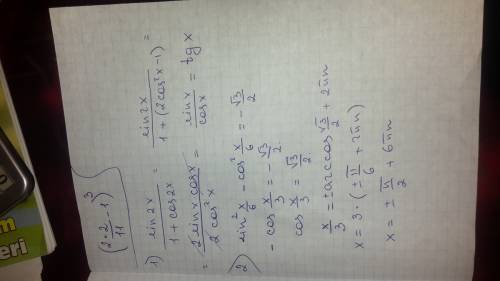 (2·2/11 - 1)³
1) sin2x/(1 + cos2x) = sin2x/(1 + (2cos²x - 1)) =
= 2sinx cosx/(2cos²x) = sinx/cosx = tgx
2) sin² x/6 - cos² x/6 = -√3/2
- cos x/3 = -√3/2
cos x/3 = √3/2
x/3 = ± arccos √3/2 + 2πn
x = 3·(± π/6 + 2πn)
x = ± π/2 + 6πn
leri